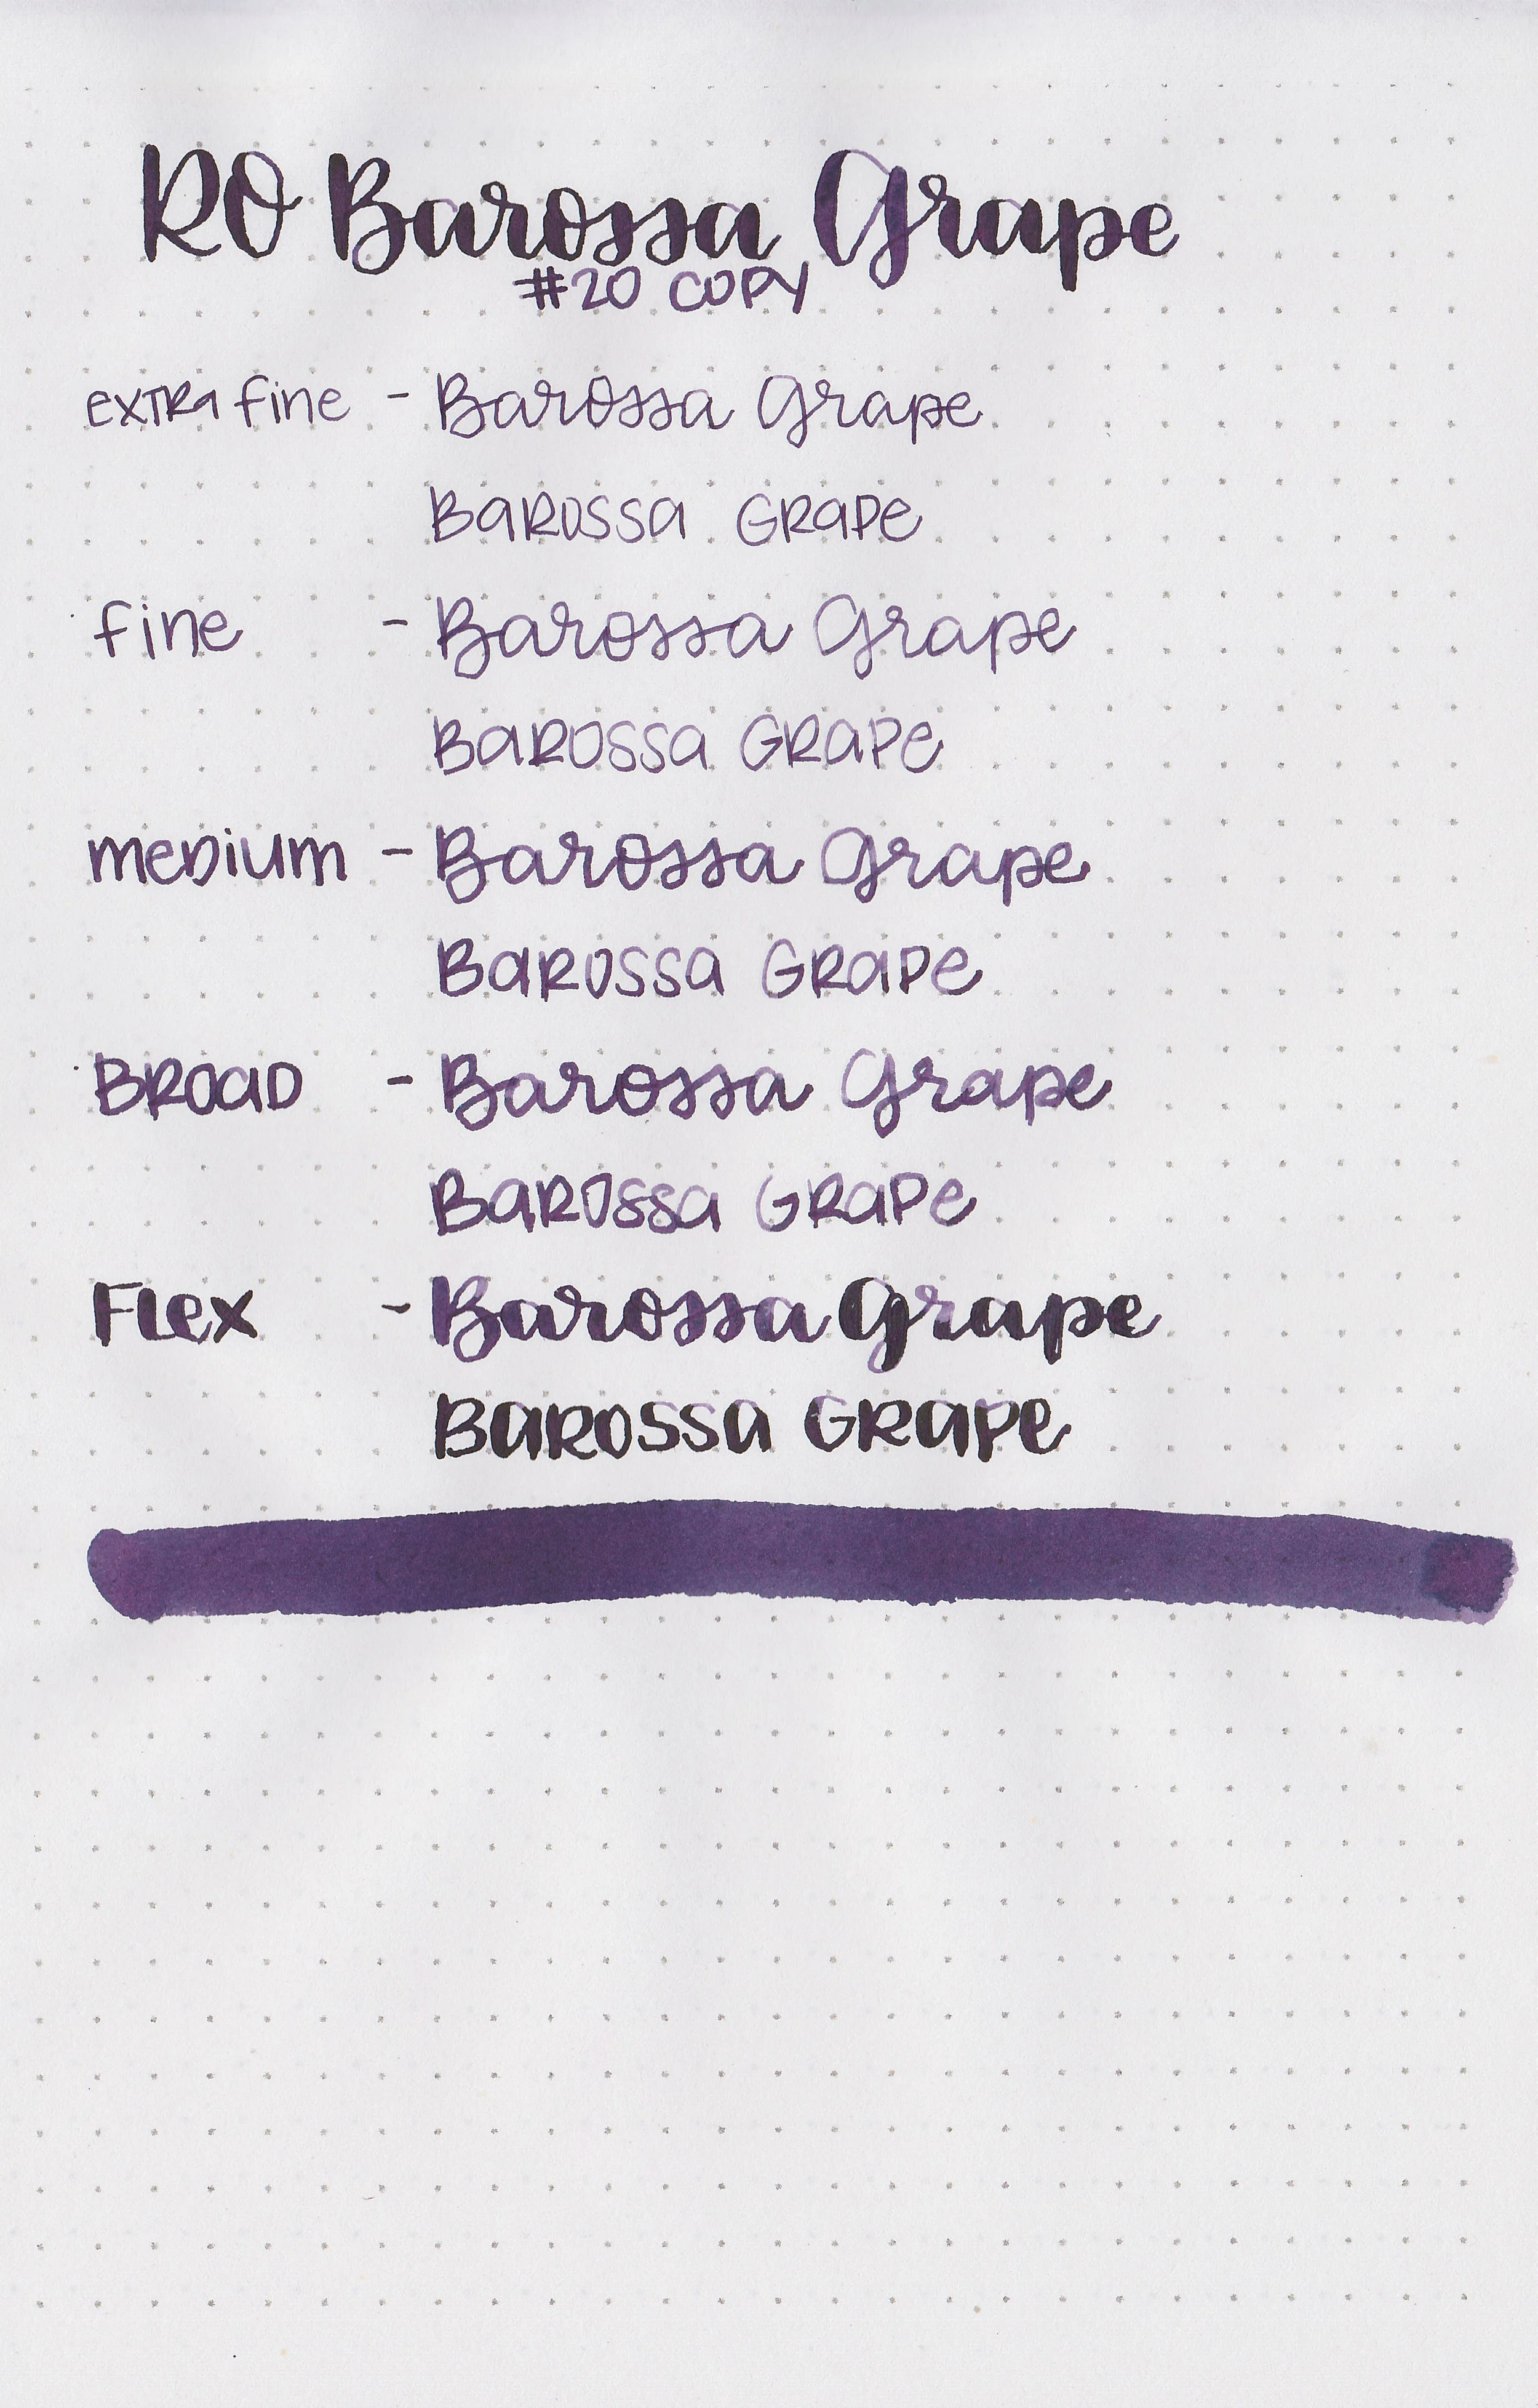 RO Barossa Grape
#20 COPY
EXTRA fine - Barossa Grape
BaROSSa GRaPe
fine - Barossa Grape
BaROSSa GRaPe
meDium - Barossa Grape
BaROSSa GRaPe
BROaD - Barossa Grape
BaROSSa GRaPe
FLex - Barossa Grape
BaROSSa GRaPe